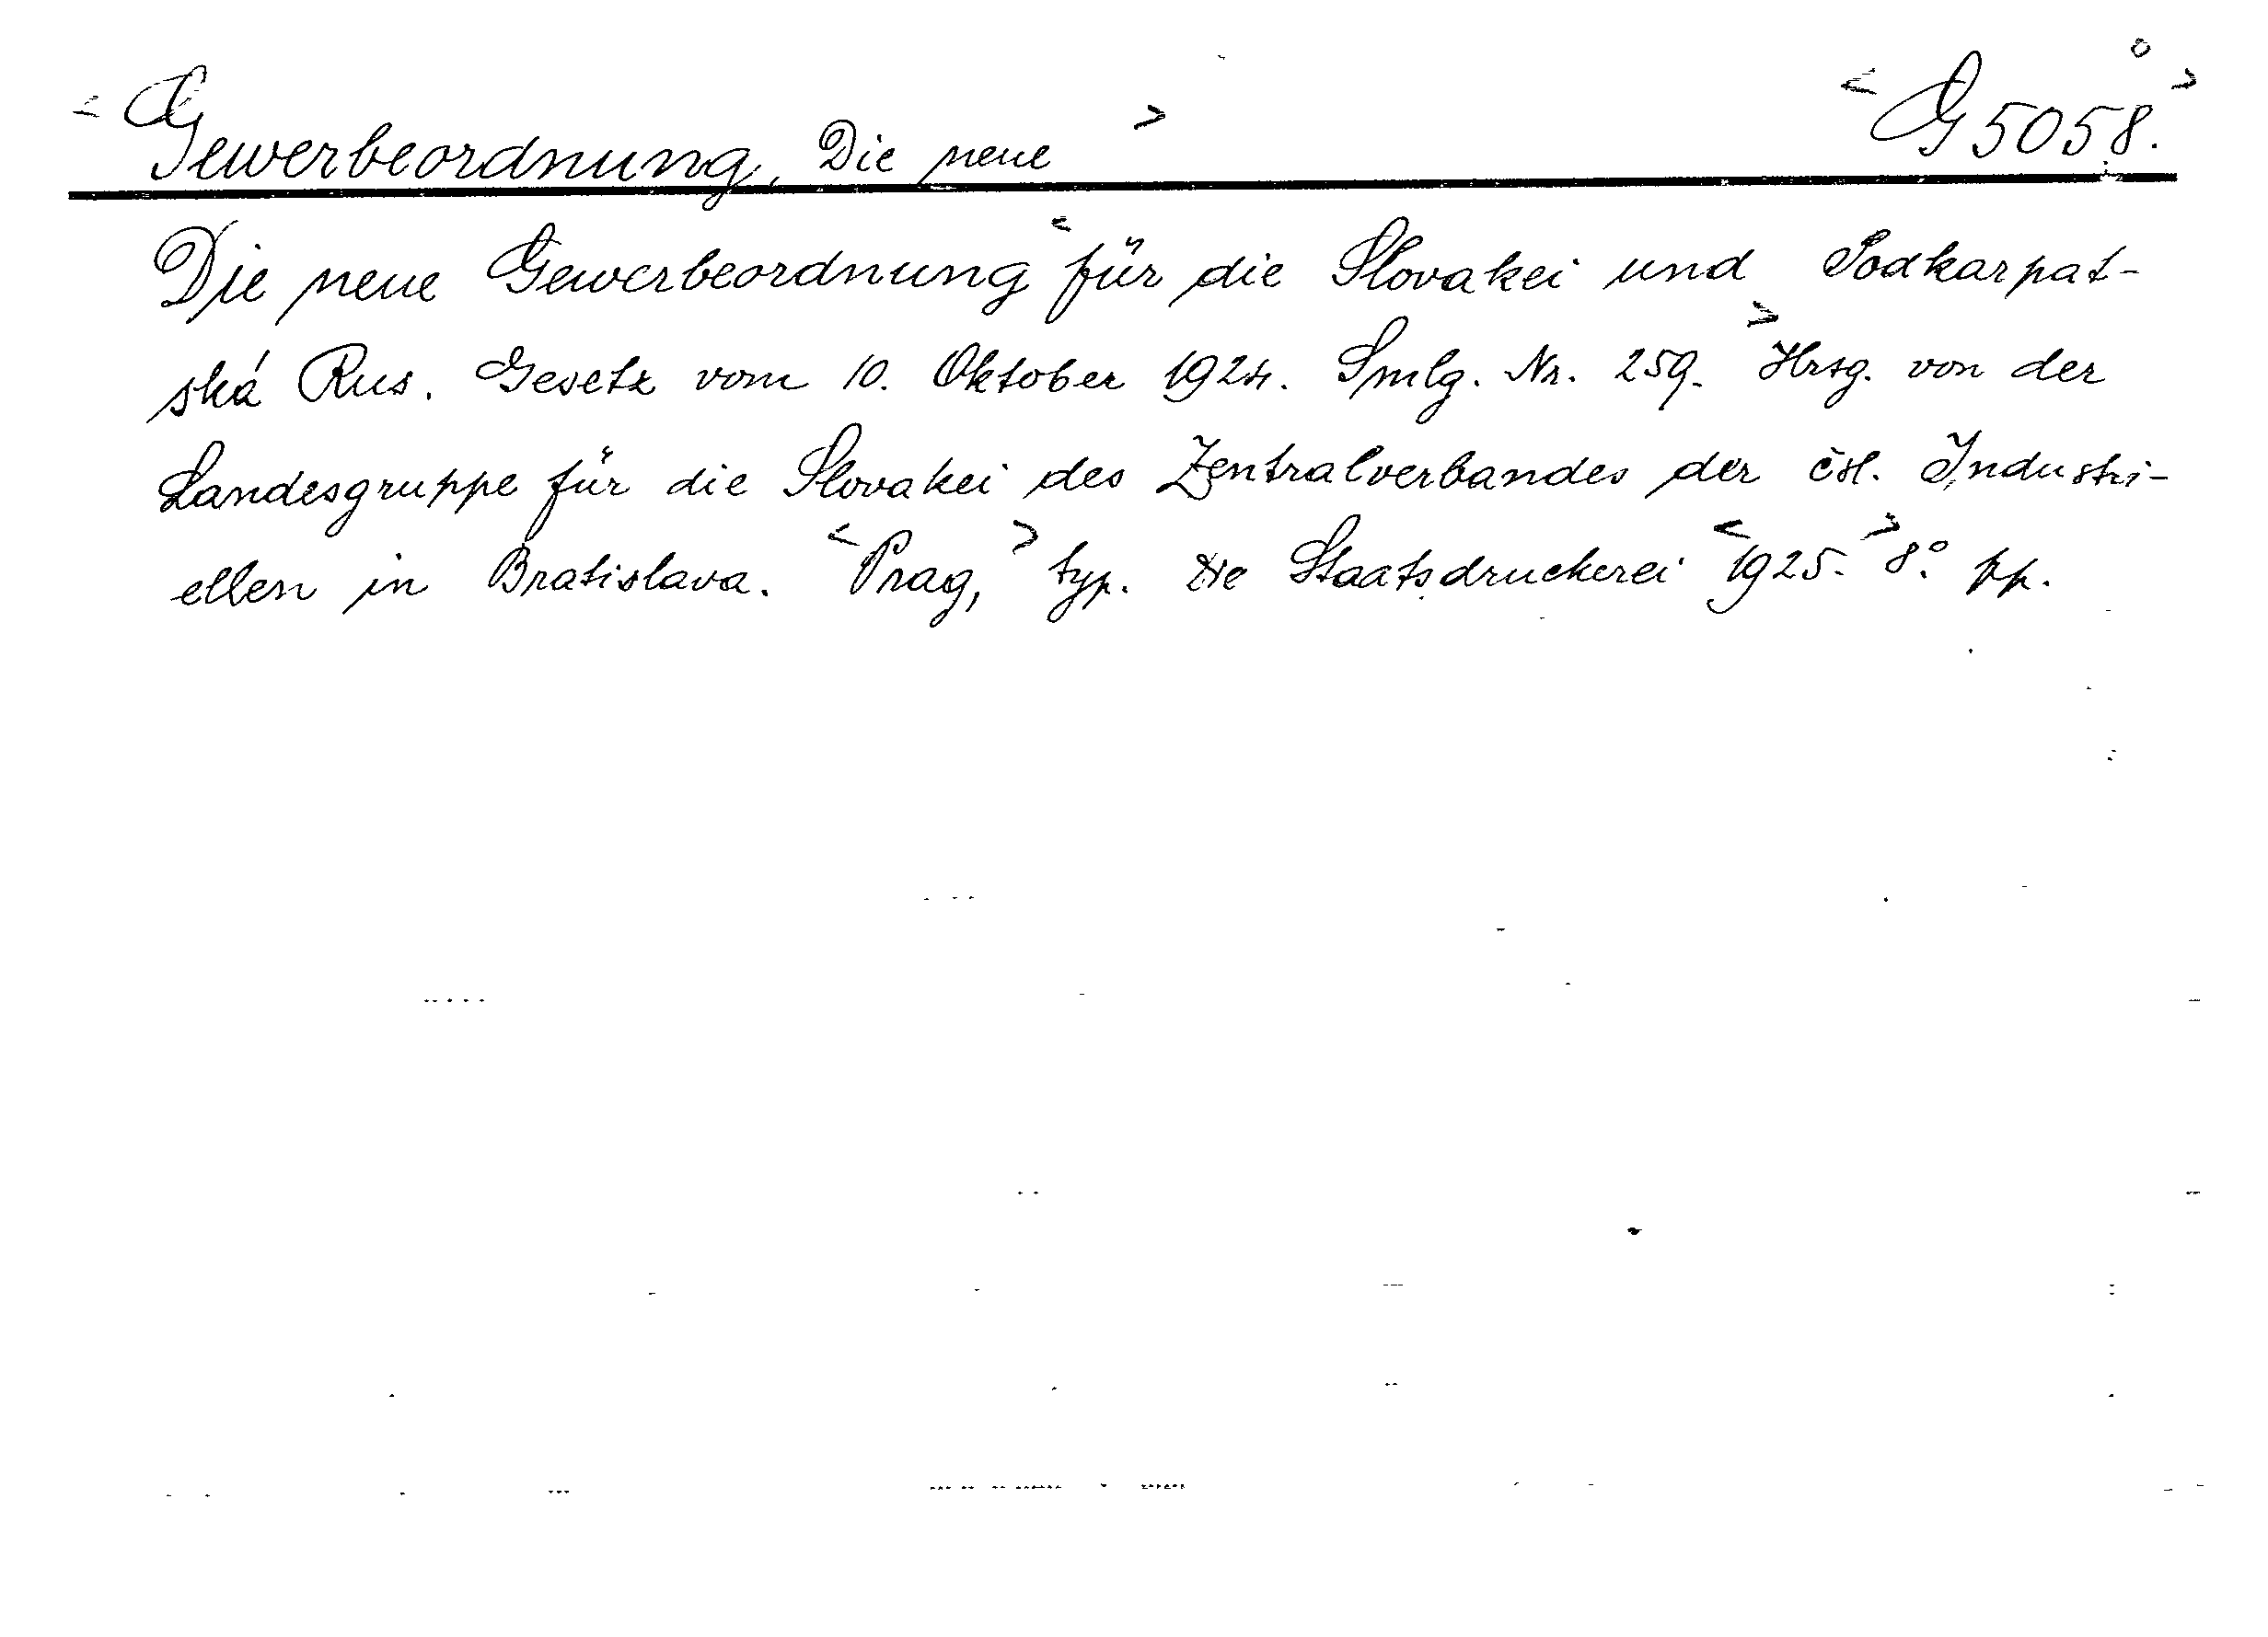 < Gewerbeordnung, Die neue > < G 5058. >
Die neue Gewerbeordnung < für die Slovakei und Podkarpat-
ská Rus. Gesetz vom 10. Oktober 1924. Smlg. Nr. 259. > Hrsg. von der
Landesgruppe für die Slovakei des Zentralverbandes der čsl. Industri-
ellen in Bratislava. < Prag, > typ. Staatsdruckerei < 1925. > 8° pp.